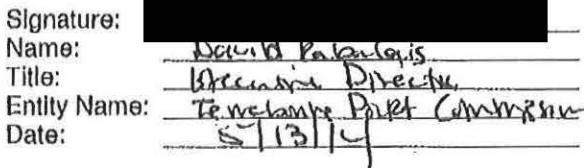 Signature:
Name: David
Title: Executive Director
Entity Name: Port Commission
Date: 5/13/14